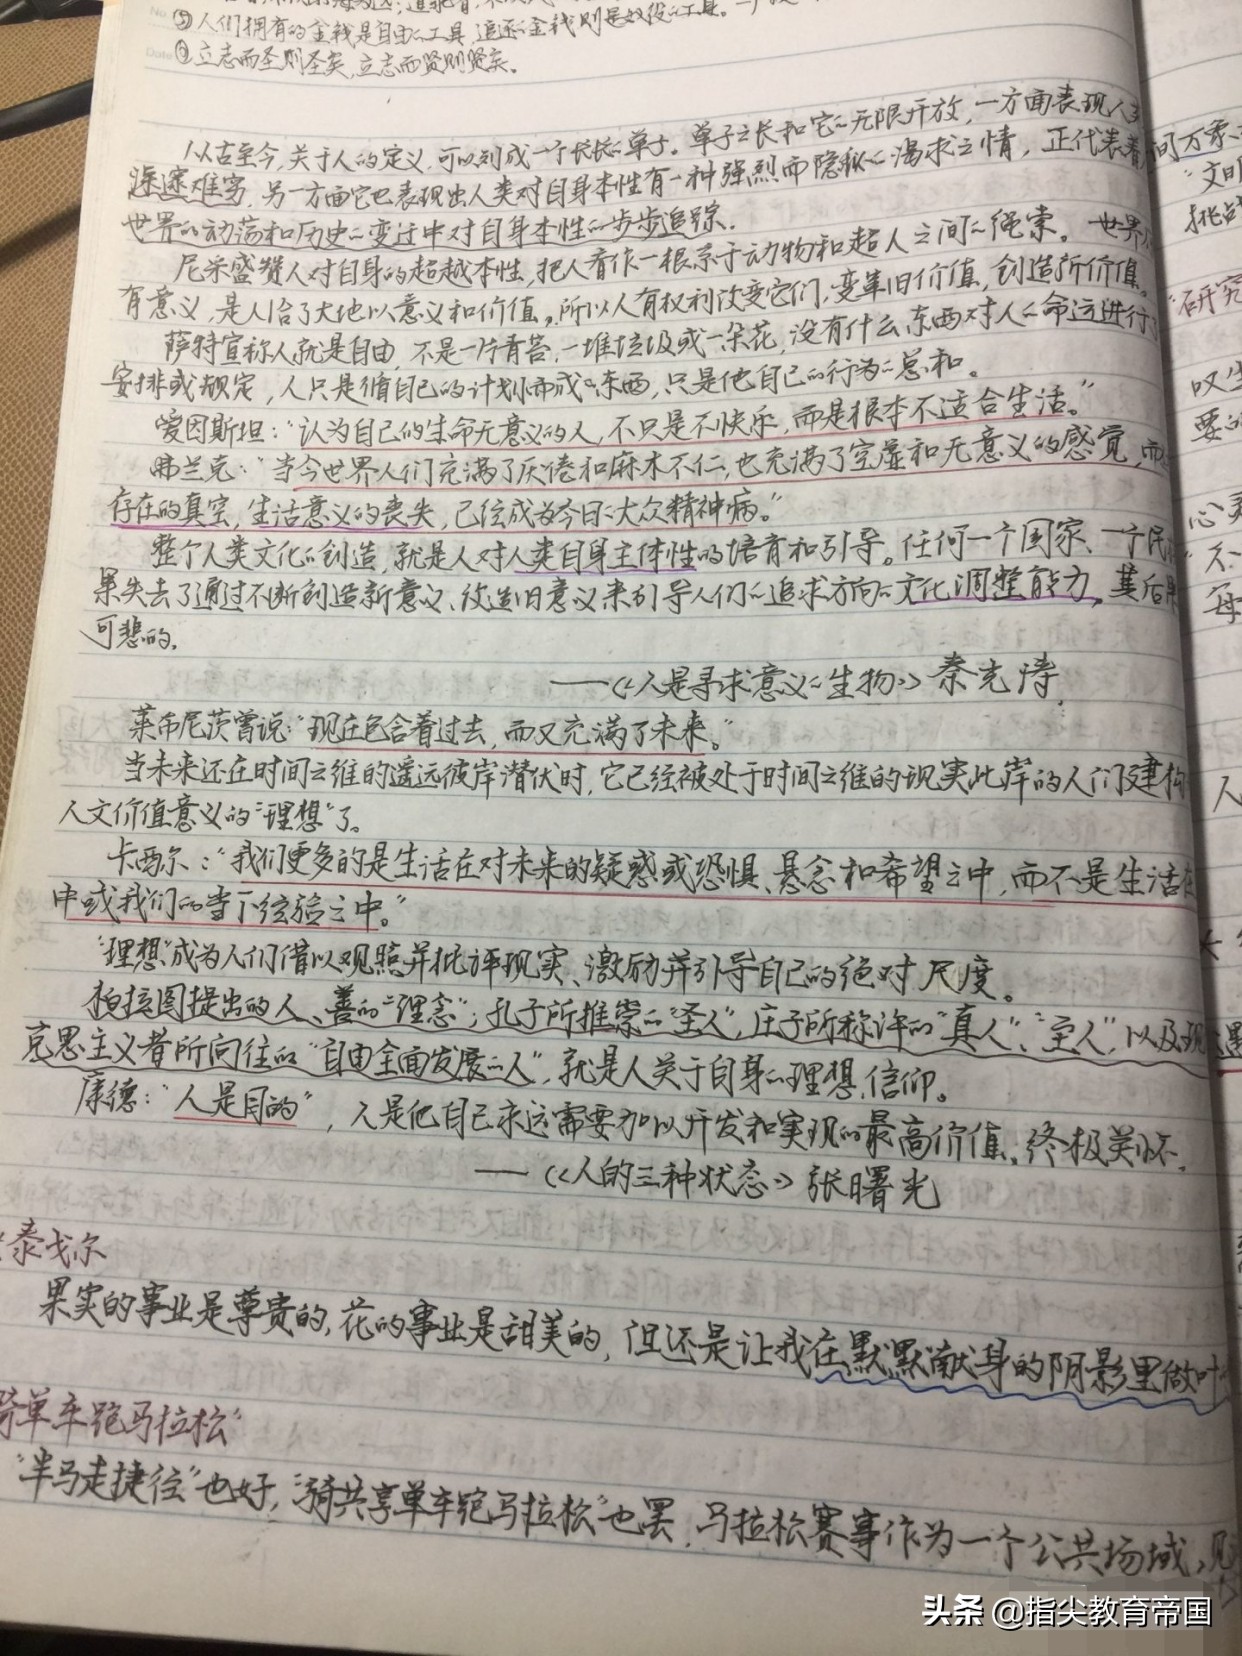 No.
⑤人们拥有的金钱是自由的工具，追逐的金钱则是奴役的工具。
Date
⑥立志而圣则圣矣，立志而贤则贤矣。
从古至今，关于人的定义，可以列成一个长长的单子。单子之长和它的无限开放，一方面表现人
深邃难穷，另一方面它也表现出人类对自身本性有一种强烈而隐秘的渴求之情，正代表着
世界的动荡和历史的变迁中对自身本性的步步追踪。
尼采盛赞人对自身的超越本性，把人看作一根系于动物和超人之间的绳索。世界
有意义，是人给了大地以意义和价值，所以人有权利改变它们，变革旧价值，创造新价值。
萨特宣称人就是自由，不是一片青苔，一堆垃圾或一朵花，没有什么东西对人的命运进行
安排或规定，人只是循自己的计划而成的东西，只是他自己的行为的总和。
爱因斯坦：“认为自己的生命无意义的人，不只是不快乐，而是根本不适合生活。”
弗兰克：“当今世界人们充满了厌倦和麻木不仁，也充满了空虚和无意义的感觉，而
存在的真空，生活意义的丧失，已经成为今日的大众精神病。”
整个人类文化的创造，就是人对人类自身主体性的培育和引导。任何一个国家、一个民
果失去了通过不断创造新意义、改造旧意义来引导人们的追求方向的文化调整能力，其后果
可悲的。
——《人是寻求意义的生物》秦光涛
莱布尼茨曾说：“现在包含着过去，而又充满了未来。”
当未来还在时间之维的遥远彼岸潜伏时，它已经被处于时间之维的现实此岸的人们建构
人文价值意义的“理想”了。
卡西尔：“我们更多的是生活在对未来的疑惑或恐惧、悬念和希望之中，而不是生活在
中或我们的当下经验之中。”
“理想”成为人们借以观照并批评现实、激励并引导自己的绝对尺度。
柏拉图提出的人、善的“理念”；孔子所推崇的“圣人”，庄子所称许的“真人”、“至人”，以及
克思主义者所向往的“自由全面发展的人”，就是人关于自身的理想、信仰。
康德：“人是目的”，人是他自己永远需要加以开发和实现的最高价值、终极关怀。
——《人的三种状态》张曙光
泰戈尔
果实的事业是尊贵的，花的事业是甜美的，但还是让我在默默献身的阴影里做叶
骑单车跑马拉松”
“半马走捷径”也好，“骑共享单车跑马拉松”也罢，马拉松赛事作为一个公共场域，
间万象
“文明
挑战
“研究
叹生
要的
心灵
不
每
人
头条 @指尖教育帝国